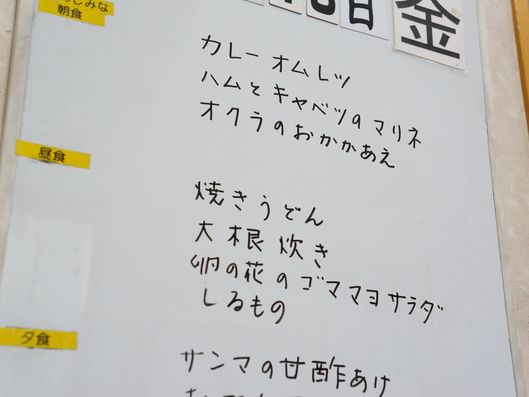 朝食
金
カレーオムレツ
ハムとキャベツのマリネ
オクラのおかかあえ
昼食
焼きうどん
大根炊き
卯の花のゴママヨサラダ
しるもの
夕食
サンマの甘酢あけ